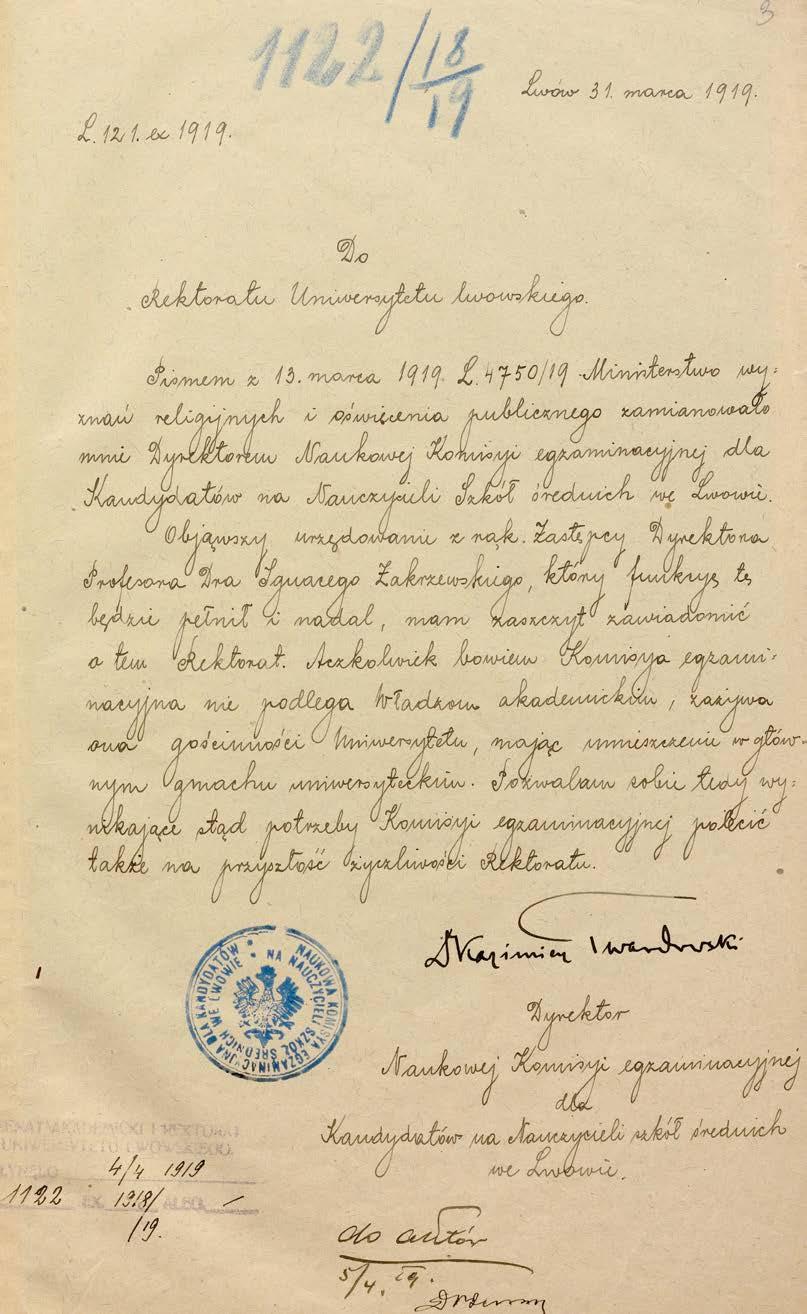 3
1122/18/19
Lwów 31. marca 1919.
L. 121. ex 1919.
Do
Rektoratu Uniwersytetu lwowskiego.
Pismem z 13. marca 1919. L. 4750/19 Ministerstwo wy-
znań religijnych i oświęcenia publicznego zamianowało
mnie Dyrektorem Naukowej Komisyi egzaminacyjnej dla
Kandydatów na Nauczycieli Szkół średnich we Lwowie.
Objąwszy urzędowanie z rąk. Zastępcy Dyrektora
Profesora Dra Ignacego Zakrzewskiego, który funkcyę tę
będzie pełnił i nadal, mam zaszczyt zawiadomić
o tem Rektorat. Aczkolwiek bowiem Komisya egzami-
nacyjna nie podlega Władzom akademickim, zażywa
ona gościnności Uniwersytetu, mając umieszczenie w głów-
nym gmachu uniwersyteckim. Pozwalam sobie tedy wy-
nikające stąd potrzeby Komisyi egzaminacyjnej polecić
także na przyszłość życzliwości Rektoratu.
Dr Kazimierz Twardowski
NAUKOWA KOMISYA EGZAMINACYJNA DLA KANDYDATÓW
NA NAUCZYCIELI SZKÓŁ ŚREDNICH WE LWOWIE
Dyrektor
Naukowej Komisyi egzaminacyjnej
dla
Kandydatów na Nauczycieli szkół średnich
we Lwowie.
SENAT AKADEMICKI I REKTORAT
UNIWERSYTETU LWOWSKIEGO.
4/4 1919
1122 EX 1918/ ALEG. —
/19.
do aktów
5/4. 19.